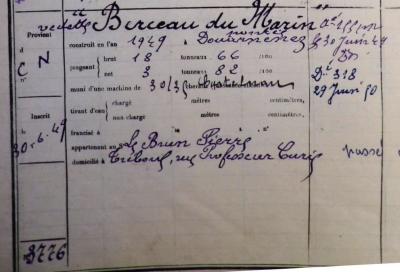 vedette "Berceau du Marin"
Provient
d
C N
n°
construit en l'an 1949 à Douarnenez ponté
le 30 Juin 49
jaugeant brut 18 tonneaux 66 /100
net 3 tonneaux 82 /100
muni d'une machine de 30/35 chevaux
D^n 318
29 Juin 50
tirant d'eau chargé mètres centimètres,
non chargé mètres centimètres,
Inscrit
le
30.6.49
francisé à , le , n°
appartenant au s^r Le Brun Pierre
domicilié à Tréboul, rue Professeur Curie
passé
3776